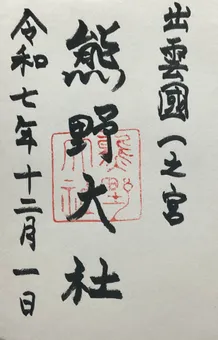 出雲國一之宮
熊野大社
令和七年十二月一日
熊野大社